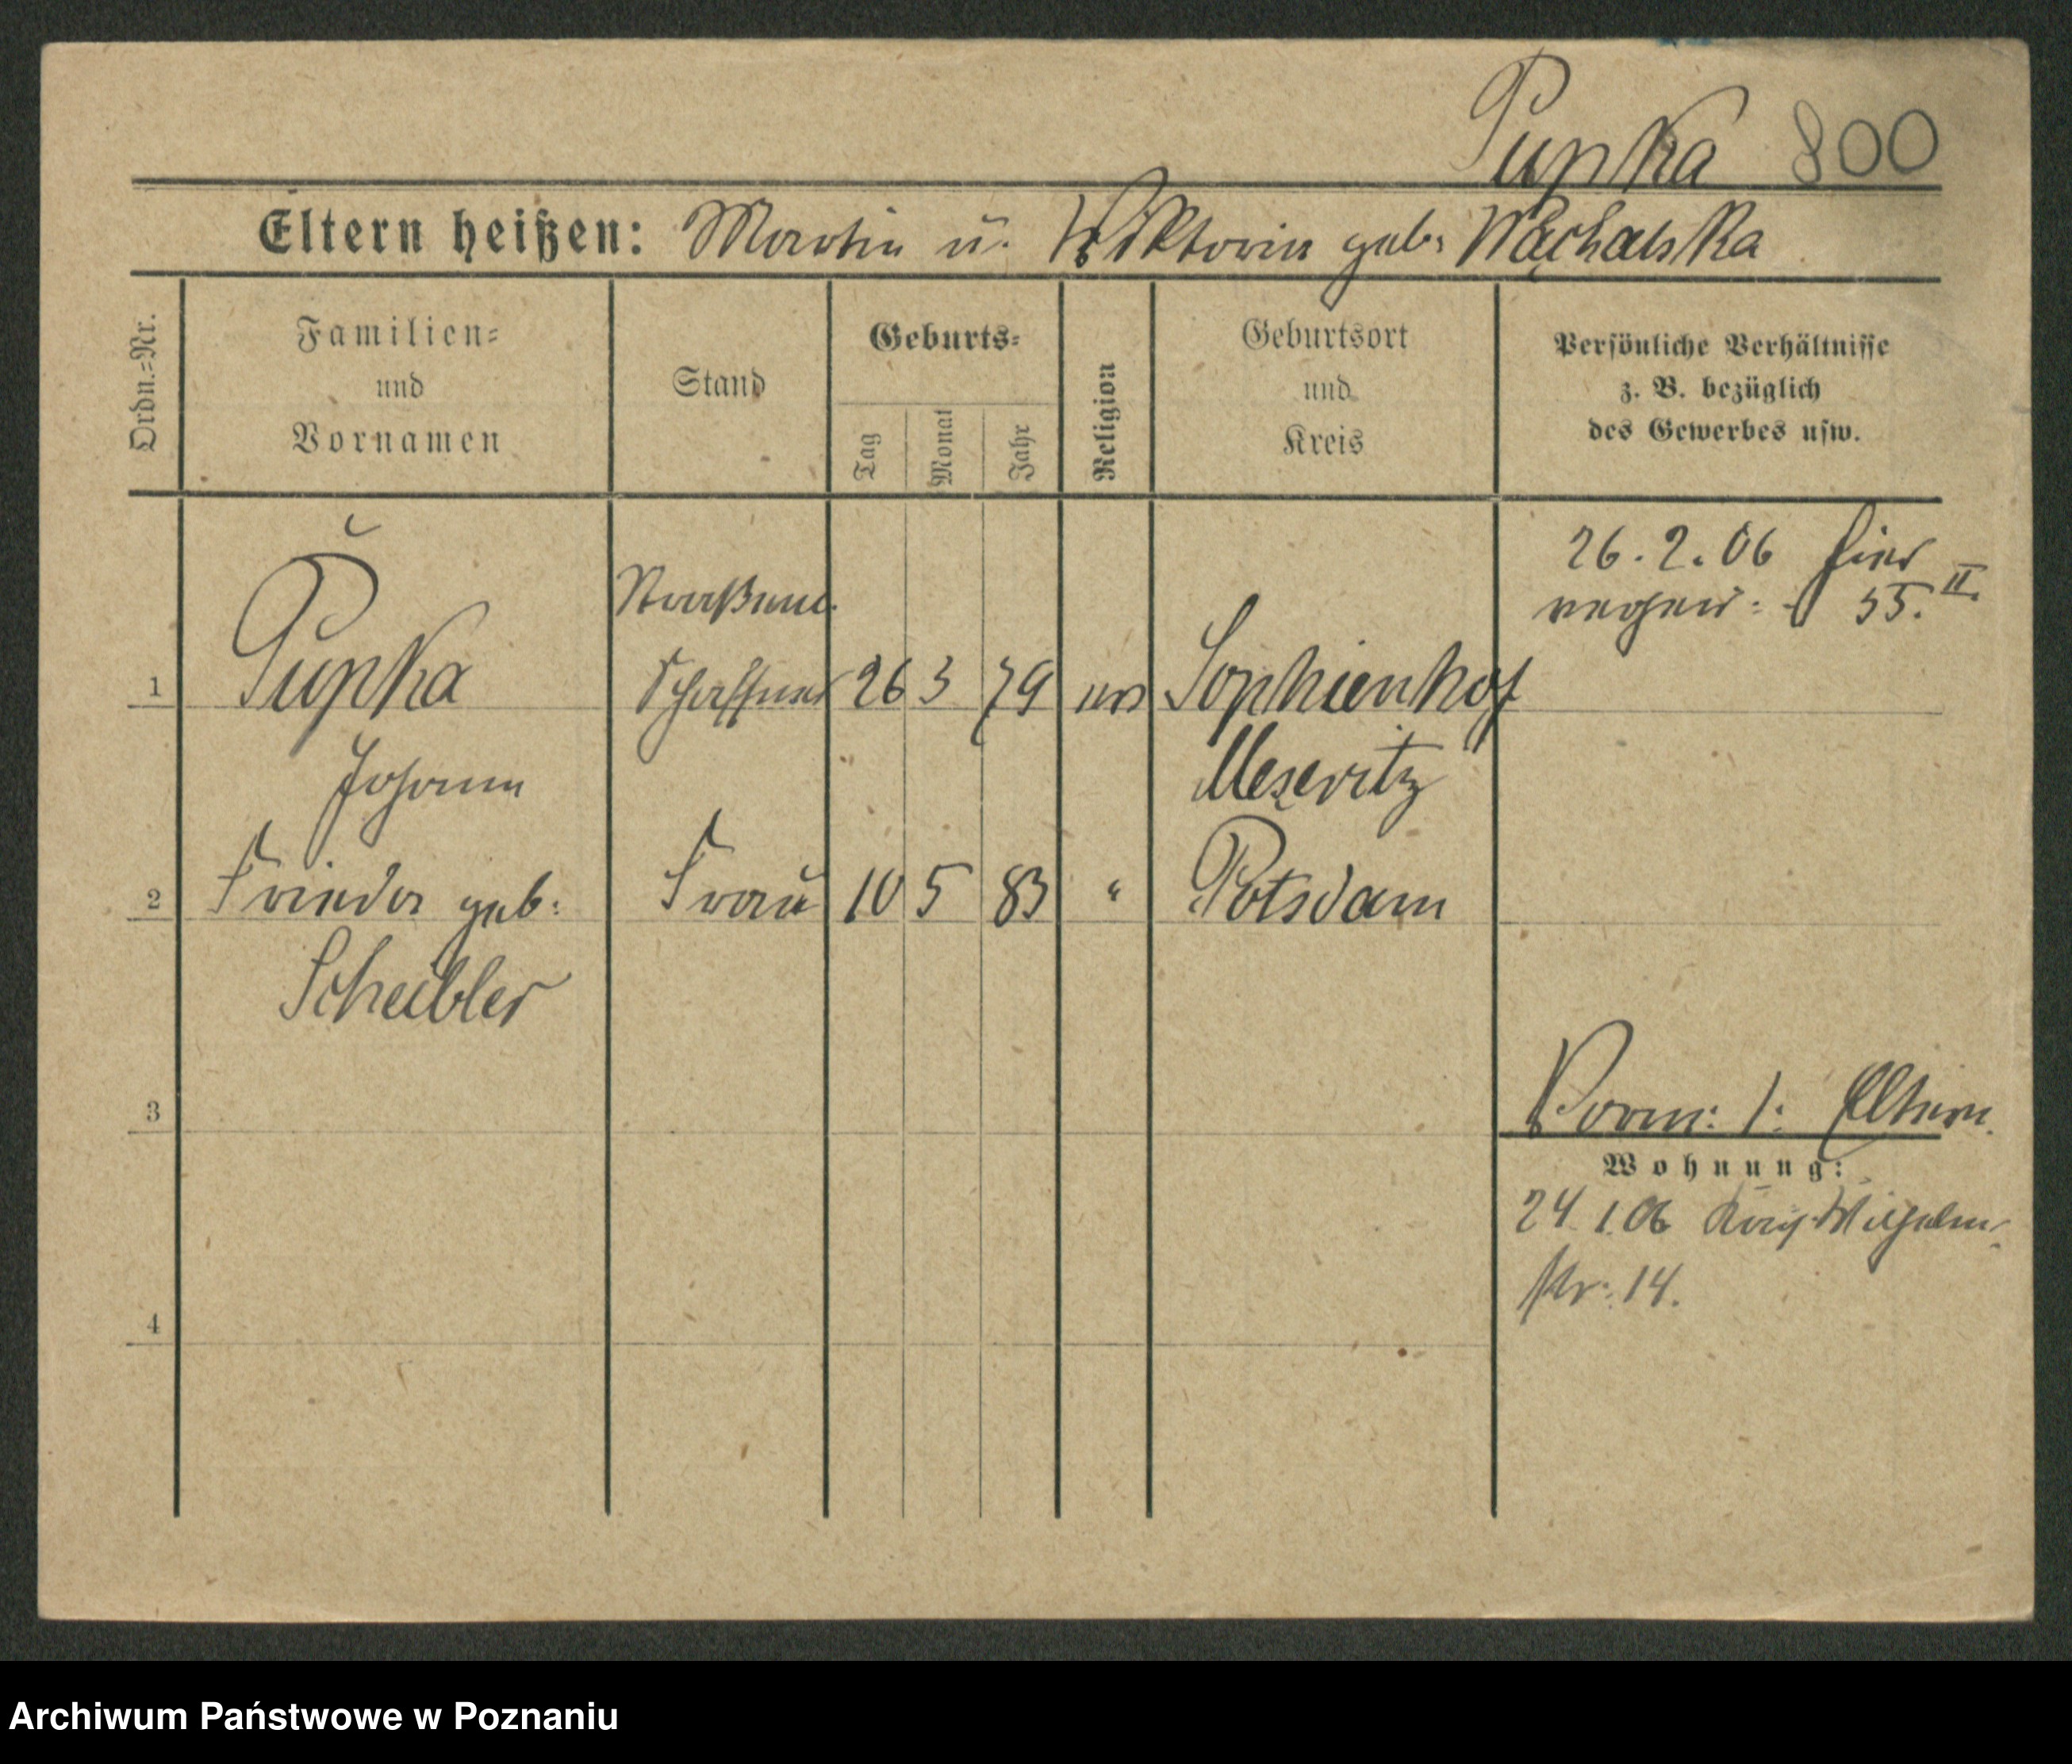 Pupka 800
Eltern heißen: Martin u. Viktoria geb. Wachalska
Ordn.-Nr.
Familien-
und
Vornamen
Stand
Geburts-
Tag
Monat
Jahr
Religion
Geburtsort
und
Kreis
Persönliche Verhältnisse
z. B. bezüglich
des Gewerbes usw.
26. 2. 06 hier
55. II.
Straßenb.
1 Pupka Schaffner 26 3 79 Sophienhof
Johann Meseritz
2 Frieda geb: Frau 10 5 83 " Potsdam
Scheibler
3
Vorm: 1: Eltern.
Wohnung:
24.1.06 Wilhelm-
str: 14.
4
Archiwum Państwowe w Poznaniu